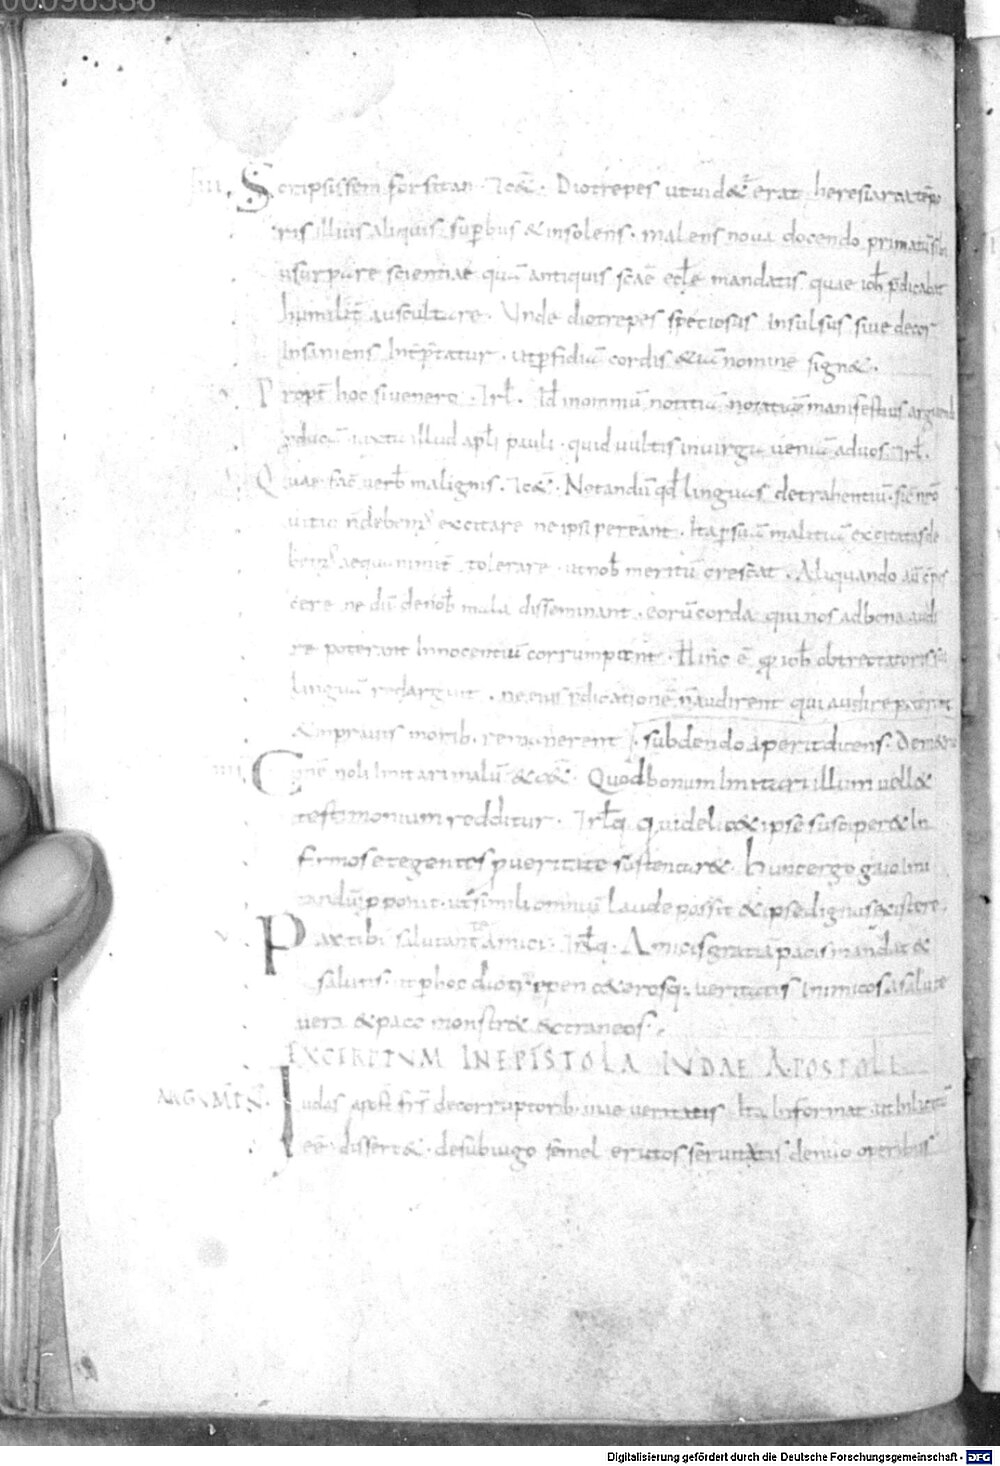 00096338
III. Scripsissem forsitan. ⁊c&̄. Diotrepes ut uid&̄ erat heresiarca tēpo
ris illius aliquis. sup̄bus & insolens. malens noua docendo primatū sibi
usurpare scientiae quā antiquis scāe eccłe mandatis quae ioħ p̄dicabat
humilit̄ auscultare. Unde diotrepes speciosus insulsus siue decor
insaniens int̄p̄tatur. ut p̄fidiā cordis & iā nomine sign&.
v. Propt̄ hoc si uenero. ⁊rł. Id inommū notitiā manifestius arguendi
p̄ducā iuxta illud apłi pauli. quid uultis in uirga ueniā ad uos. ⁊rł.
Quae fac̄ uerb̄ malignis. ⁊c&. Notandū qđ linguas detrahentiū. sic̄ nr̄o
uitio n̄ debem; excitare ne ipsi pereant. Ita p̄ suā malitiā excitatas de
bem; aequanimit̄ tolerare. ut nob̄ meritū crescat. Aliquando aū cōpes
cere ne dū de nob̄ mala disseminant. eorū corda qui nos ad bona audi
re poterant innocentiū corrumpant. Hinc ē qđ ioħ obtrectatoris sui
linguā redarguit. ne eius p̄dicationē n̄ audirent qui audire poterant
& in prauis morib. remanerent. subdendo aperit dicens. Demetrio
IIII. Carm̄e noli imitari malū & c&̄. Quod bonum imitari illum uell&
testimonium redditur. ⁊rłq. quidelic& ipse susciper& in
firmos et egentes p̄ ueritate sustentar&. Hunc ergo gaio imi
tandū p̄ponit. ut simili omniū laude possit & ipse dignus existere.
v. Pax tibi salutant te amici. ⁊rłq. Amicis gratiā pacis mandat &
salutis. ut p̄ hoc diotrepen c&erosq; ueritatis inimicos a salute
uera & pace monstr& extraneos.
EXCERPTUM IN EPISTOLA IUDAE APOSTOLI
ARGUMEN̄. Iudas apost̄ fr̄s de corruptorib. uiae ueritatis ita informat
eē. disser&. de sub iugo semel erutos seruitutis denuo operibus
Digitalisierung gefördert durch die Deutsche Forschungsgemeinschaft - DFG